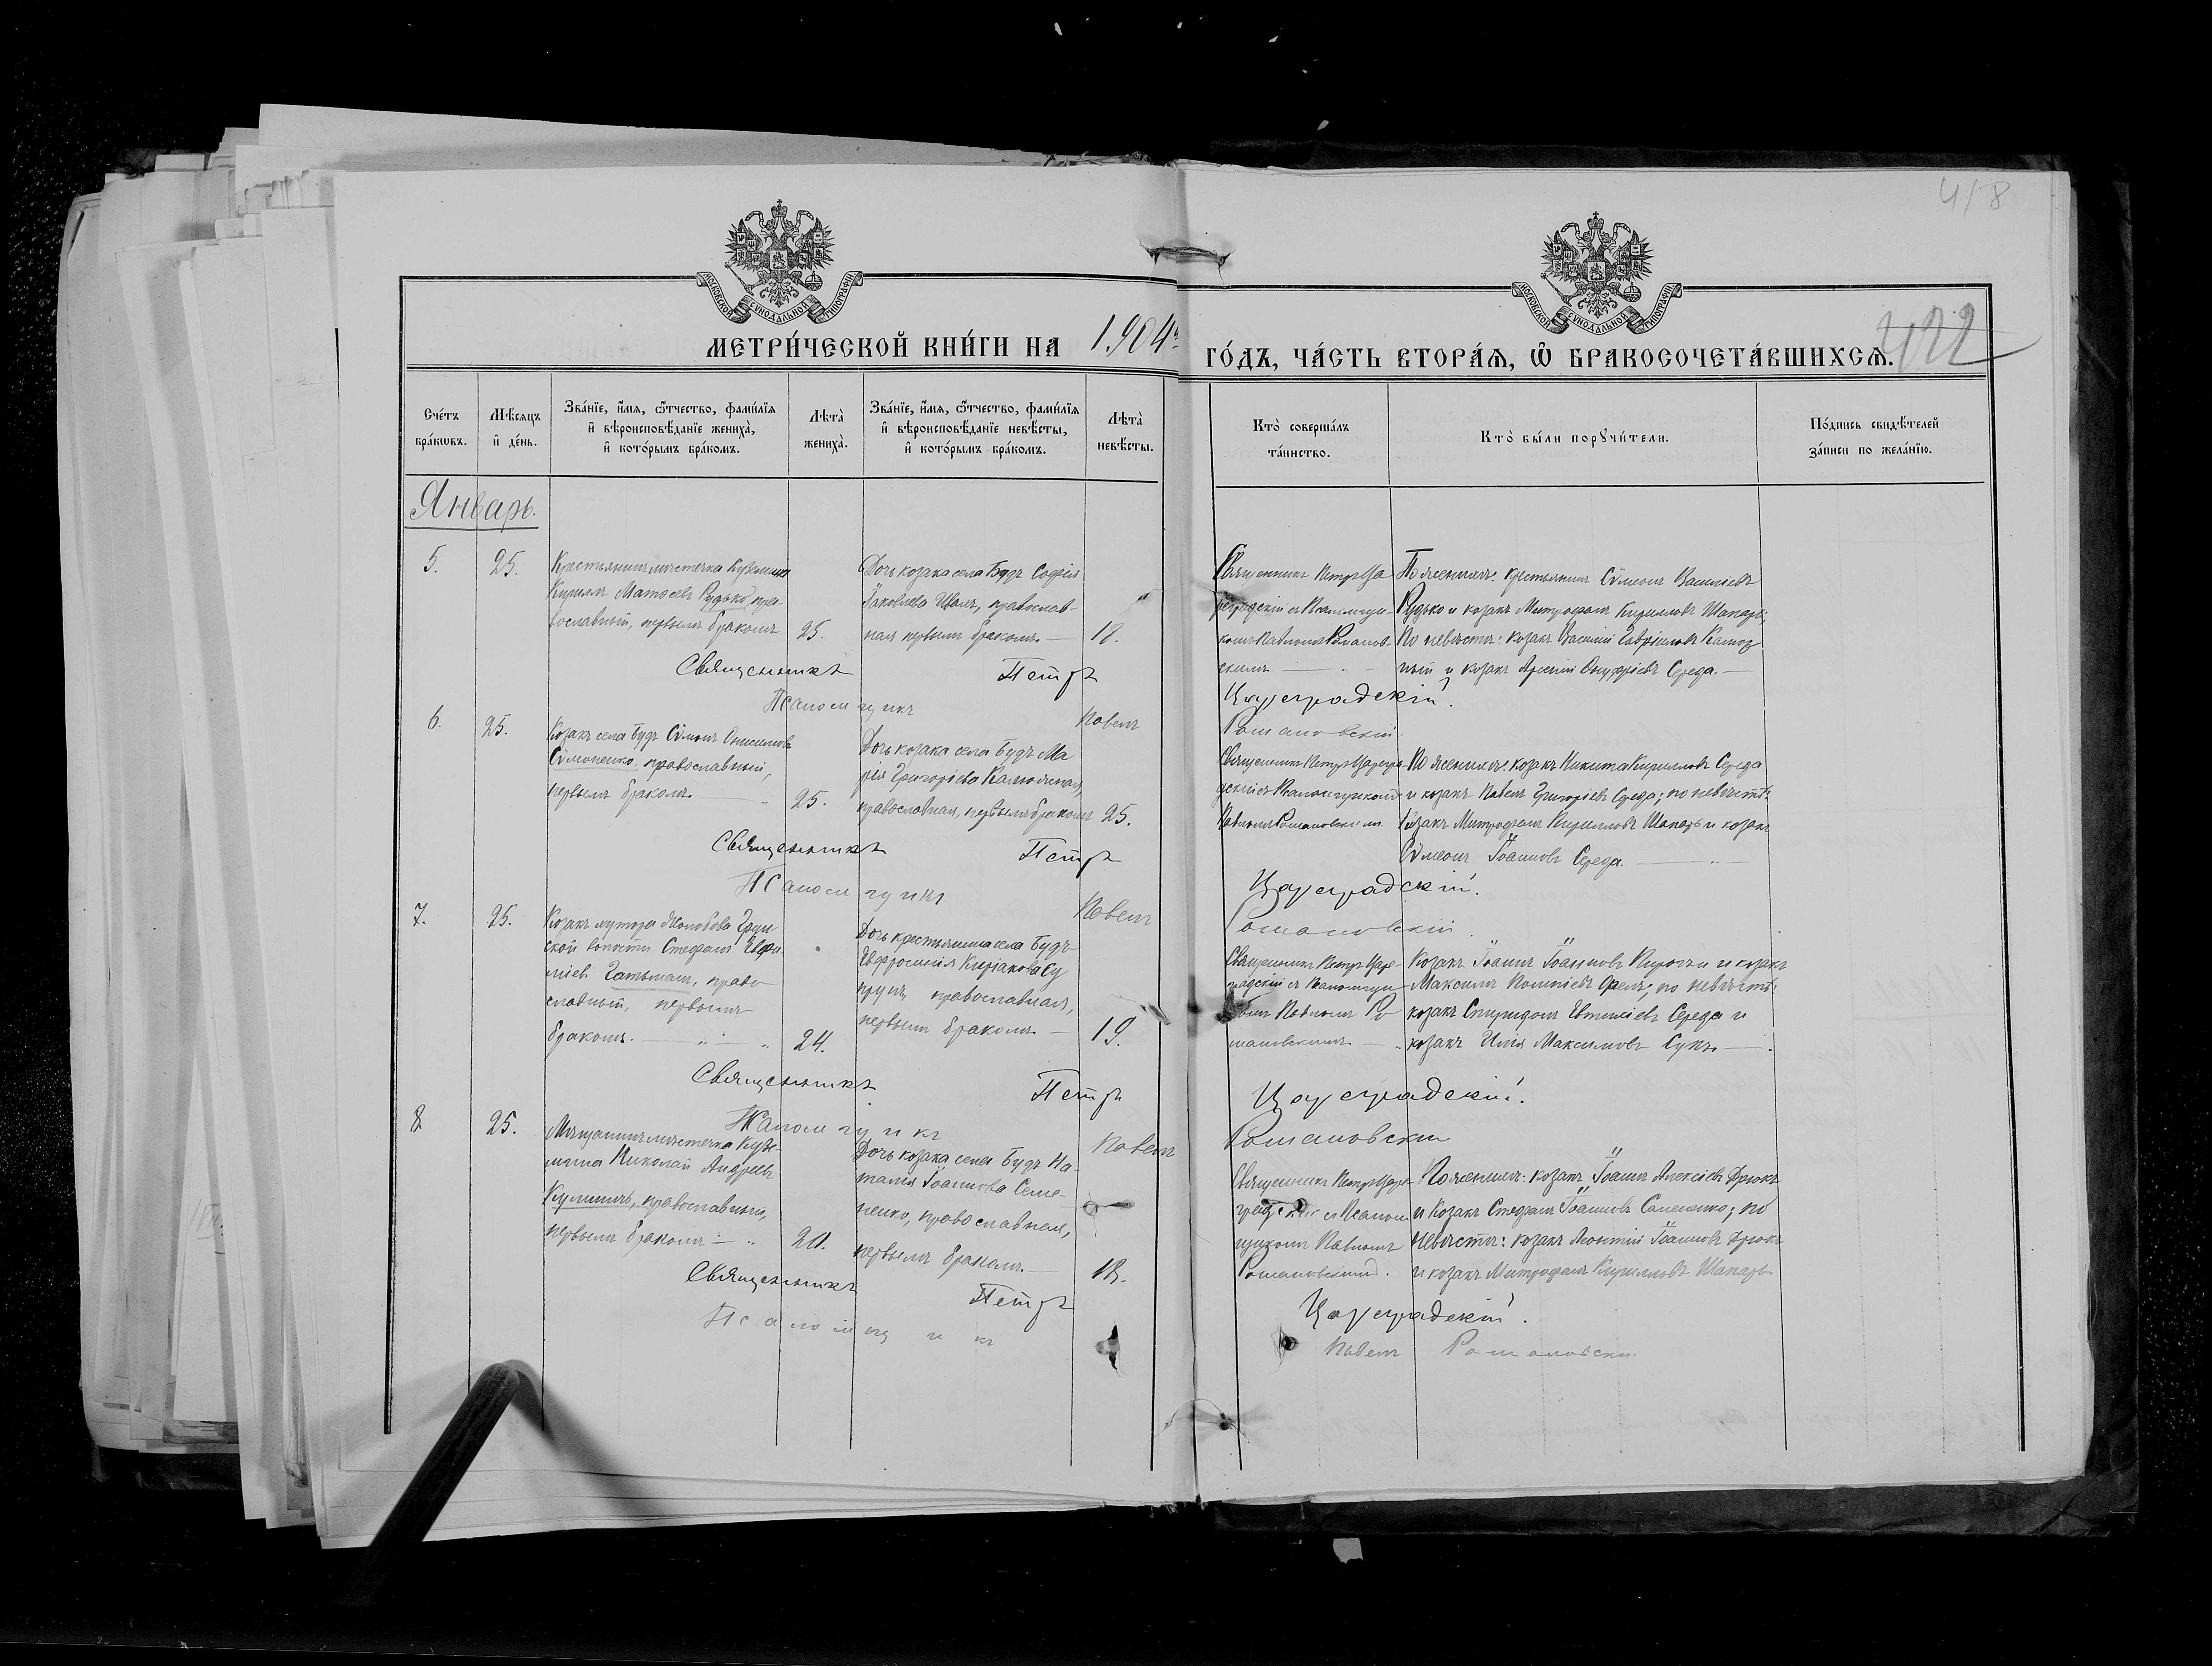 418
МОСКОВСКОЙ СУНОДАЛЬНОЙ ТИПОГРАФІИ
МОСКОВСКОЙ СУНОДАЛЬНОЙ ТИПОГРАФІИ
МЕТРИ́ЧЕСКОЙ КНИ́ГИ НА 1904й ГО́ДЪ, ЧА́СТЬ ВТОРА́Ѧ, Ѡ҆ БРАКОСОЧЕТА́ВШИХСѦ.
422
Сче́тъ бра́кѡвъ.
Мѣ́сяцъ и҆ де́нь.
Зва́нїе, и҆́мя, ѻ҆́тчество, фами́лїя
и҆ вѣроисповѣ́данїе жениха̀,
и҆ кото́рымъ бра́комъ.
Лѣта̀ жениха̀.
Зва́нїе, и҆́мя, ѻ҆́тчество, фами́лїя
и҆ вѣроисповѣ́данїе невѣ́сты,
и҆ кото́рымъ бра́комъ.
Лѣта̀ невѣ́сты.
Кто̀ соверша́лъ та́инство.
Кто̀ бы́ли порꙋчи́тели.
По́дпись свидѣ́телей за́писи по жела́нїю.
Январь.
5.
25.
Крестьянинъ местечка Куземина
Кириллъ Матѳеевъ Рудько, пра-
вославный, первымъ бракомъ
25.
Дочь козака села Будъ Софія
Іаковлева, православ-
ная первымъ бракомъ. —
18.
Священникъ Петръ Ца
реградскій съ Псаломщи-
комъ Павломъ Романов-
скимъ
По женихѣ: крестьянинъ Сѵмеонъ Василіевъ
Рудько и козакъ Митрофанъ Кирилловъ Шапарь;
по невѣстѣ: козакъ Василій Гавріиловъ
и козакъ Арсеній Онуфріевъ Середа. —
Священникъ Петръ Цареградскій.
Псаломщикъ Павелъ Романовскій.
6.
25.
Козакъ села Будъ Сѵмеонъ Онисимовъ
Сѵмоненко православный,
первымъ бракомъ.
25.
Дочь козака села Будъ Ма
рія Григоріева
православная, первымъ бракомъ
25.
Священникъ Петръ Царегра-
дскій съ Псаломщикомъ
Павломъ Романовскимъ.
По женихѣ: козакъ Никита Кирилловъ Середа
и козакъ Павелъ Григоріевъ Середа; по невѣстѣ:
козакъ Митрофанъ Кирилловъ Шапарь и козакъ
Сѵмеонъ Іоанновъ Середа.
Священникъ Петръ Цареградскій.
Псаломщикъ Павелъ Романовскій.
7.
25.
Козакъ хутора Грун-
ской волости Стефанъ Евфи-
міевъ Гетьманъ, право-
славный, первымъ
бракомъ.
24.
Дочь крестьянина села Будъ
Евфросинія Киріакова Су
прунъ, православная,
первымъ бракомъ. —
19.
Священникъ Петръ Царе-
градскій съ Псаломщи-
комъ Павломъ Ро-
мановскимъ.
Козакъ Іоаннъ Іоанновъ и козакъ
Максимъ; по невѣстѣ:
козакъ Спиридонъ Евтихіевъ Середа и
козакъ Илія Максимовъ Сукъ. —
Священникъ Петръ Цареградскій.
Псаломщикъ Павелъ Романовскій
8.
25.
Мѣщанинъ местечка Кузе-
мина Николай Андреевъ
Кулиничъ, православный,
первымъ бракомъ —
20.
Дочь козака села Будъ На-
талія Іоаннова Семе-
ненко, православная,
первымъ бракомъ. —
18.
Священникъ Петръ Царе-
градскій съ Псалом-
щикомъ Павломъ
Романовскимъ.
По женихѣ: козакъ Іоаннъ Алексіевъ Дрюкъ
и козакъ Стефанъ Іоанновъ Семененко; по
невѣстѣ: козакъ Леонтій Іоанновъ Дрюкъ
и козакъ Митрофанъ Кирилловъ Шапарь.
Священникъ Петръ Цареградскій.
Псаломщикъ Павелъ Романовскій